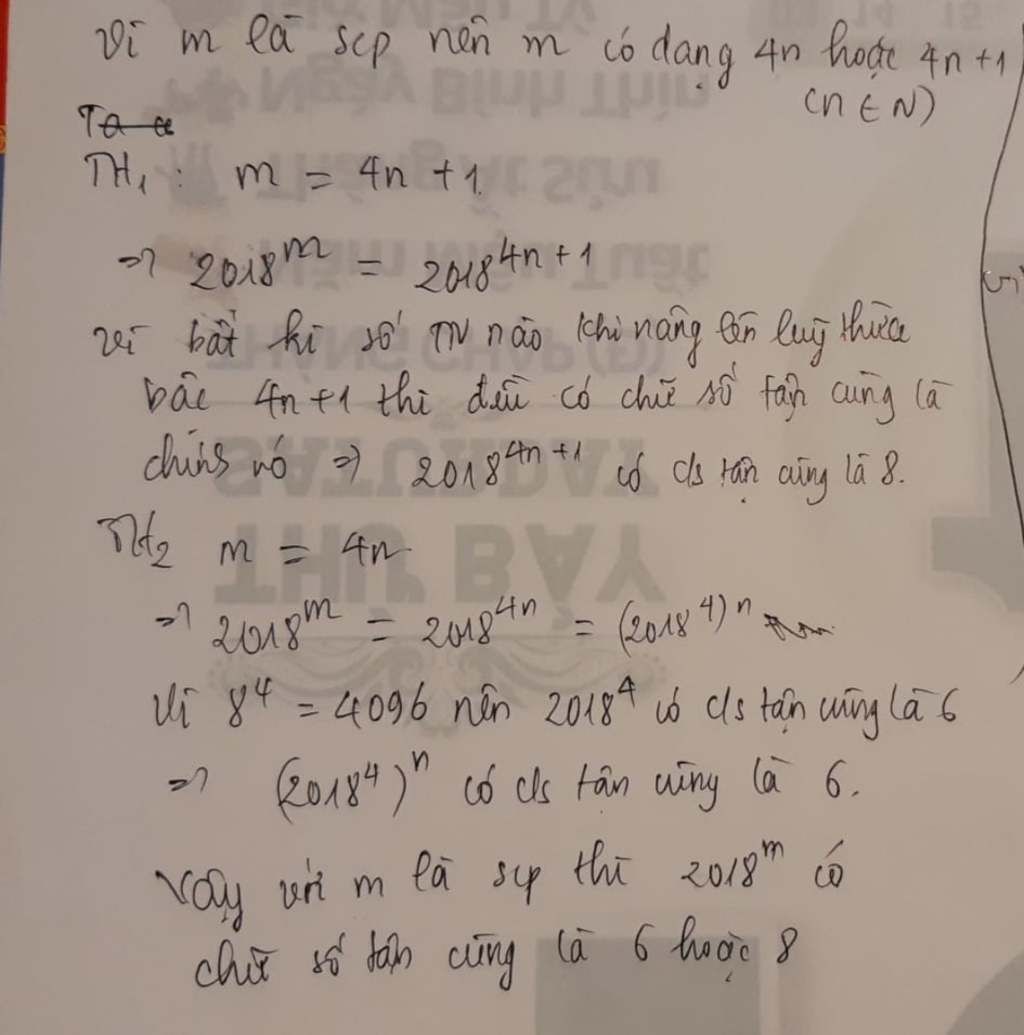 Vì m là scp nên m có dạng 4n hoặc 4n+1
(n ∈ N)
TH₁: m = 4n+1
⇒ 2018^m = 2018^{4n+1}
vì bất kì số TN nào khi nâng lên luỹ thừa
bậc 4n+1 thì đều có chữ số tận cùng là
chính nó ⇒ 2018^{4n+1} có cls tận cùng là 8.
TH₂ m = 4n
⇒ 2018^m = 2018^{4n} = (2018^4)^n
Vì 8^4 = 4096 nên 2018^4 có cls tận cùng là 6
⇒ (2018^4)^n có cls tận cùng là 6.
Vậy với m là scp thì 2018^m có
chữ số tận cùng là 6 hoặc 8
THỨ BẢY
SATURDAY